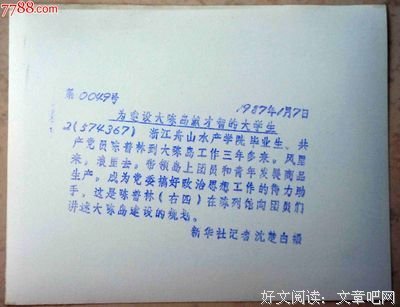 7788.com
第0049号
1987年1月7日
为建设大陈岛献才智的大学生
2(574367) 浙江舟山水产学院毕业生、共
产党员陈普林到大陈岛工作三年多来。风里
来，浪里去。带领岛上团员和青年发展商品
生产。成为党委搞好政治思想工作的得力助
手。这是陈普林（右四）在陈列馆向团员们
讲述大陈岛建设的规划。
新华社记者沈楚白摄
好文阅读：文章吧网